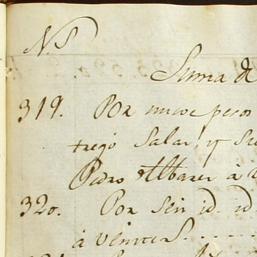 N.S
Suma de
319. Por nueve pesos
tregó Salar, y Su
Pedro Albarez à
320. Por Seis id. id
à veinte S.